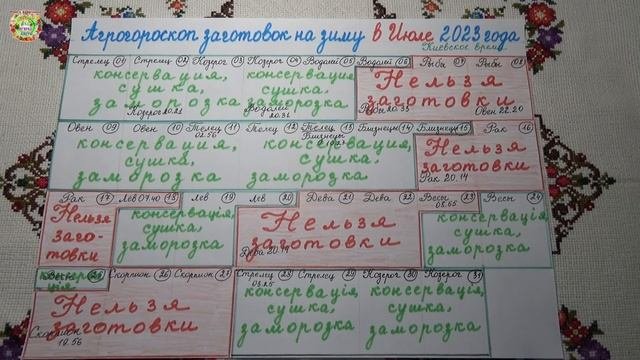 Агрогороскоп заготовок на зиму в Июле 2023 года
Киевское время
Стрелец 01 Стрелец 02 Козерог 03 Козерог 04 Водолей 05 Водолей 06 Рыбы 07 Рыбы 08
консервация, сушка, заморозка
Козерог 20.21
консервация, сушка, заморозка
Водолей 20.31
Нельзя заготовки
Рыбы 20.33
Овен 22.20
Овен 09 Овен 10 Телец 11 Телец 12 Телец 13 Близнецы 14 Близнецы 15 Рак 16
02.56
Близнецы
консервация, сушка, заморозка
консервация, сушка, заморозка
Нельзя заготовки
Рак 20.14
Рак 17 Лев 07.40 18 Лев 19 Лев 20 Дева 21 Дева 22 Весы 23 Весы 24
08.55
Нельзя заготовки
консервація, сушка, заморозка
Нельзя заготовки
Дева
консервація, сушка, заморозка
25 Скорпион 26 Скорпион 27 Стрелец 28 Стрелец 29 Козерог 30 Козерог 31
Нельзя заготовки
Скорпион 19.56
консервація, сушка, заморозка
консервація, сушка, заморозка